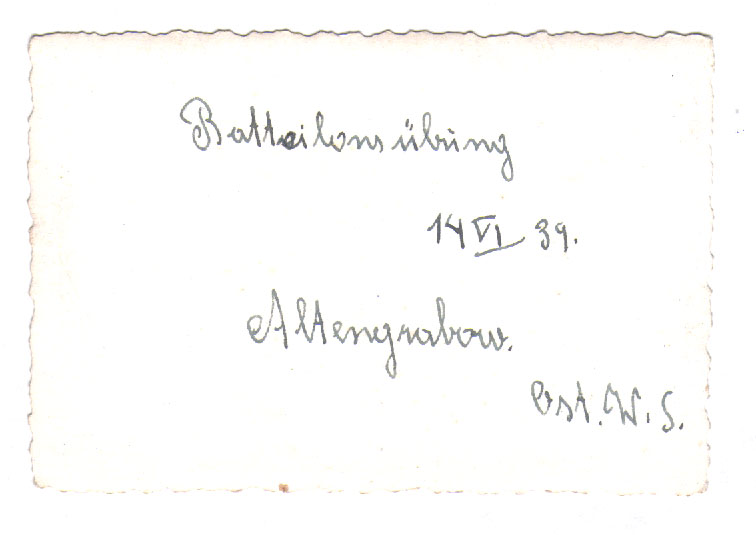 Batteilonsübung
14 VI 39.
Altengrabow.
Ost. W. S.